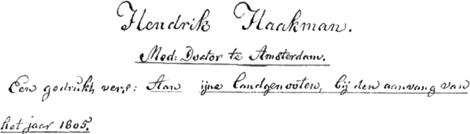 Hendrik Haakman.
Med: Doctor te Amsterdam.
Een gedrukt vers: Aan ijne landgenooten, bij den aanvang van
het jaar 1805.